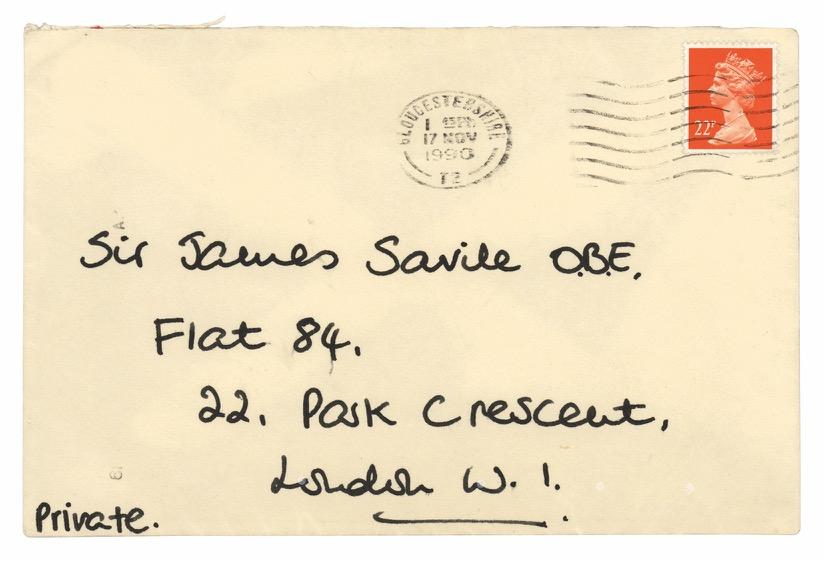 GLOUCESTERSHIRE
17 NOV
1990
22P
Sir James Savile O.B.E.
Flat 84.
22. Park Crescent,
London W. 1.
Private.